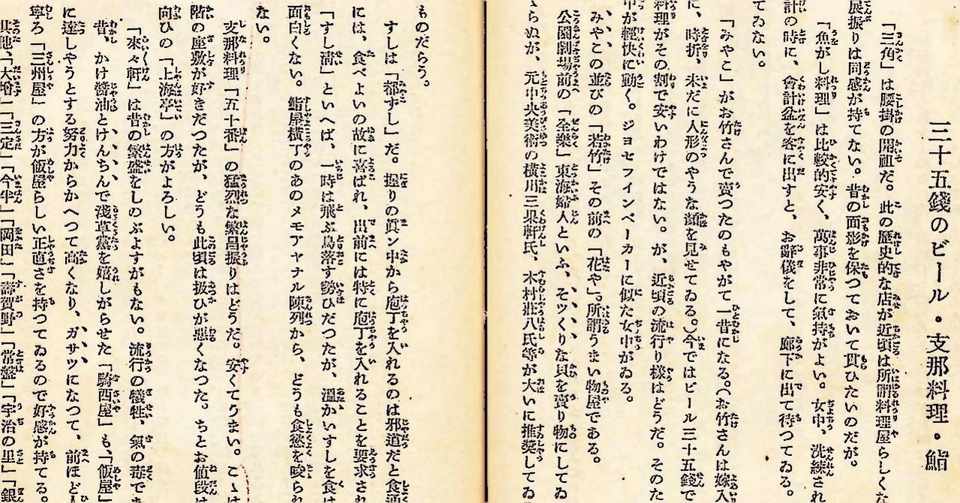 三十五錢のビール・支那料理・鮨
「三角」は腰掛の開祖だ。此の歷史的な店が近頃は所謂料理屋らしく
展振りは同感が持てない。昔の面影を保つておいて貰ひたいのだが。
「魚がし料理」は比較的安く、萬事非常に氣持がよい。女中、洗練され
計の時に、會計盆を客に出すと、お辭儀をして、廊下に出て待つてゐる。
てゐない。
「みやこ」がお竹さんで賣つたのもやがて一昔になる。(お竹さんは嫁入
に、時折、未だに人形のやうな顏を見せてゐる。)今ではビール三十五錢で
料理がその割で安いわけではない。が、近頃の流行り樣はどうだ。そのた
中が輕快に動く。ジヨセフインベーカーに似た女中がゐる。
みやこの並びの「若竹」その前の「花や」。所謂うまい物屋である。
公園劇場前の「金樂」東海婦人といふ、そツくりな貝を賣り物にしてゐ
らぬが、元中央美術の橫川三果軒氏、木村莊八氏等が大いに推奬してゐ
ものだらう。
すしは「都ずし」だ。握りの眞ン中から庖丁を入れるのは邪道だと食通
は、食べよい故に喜ばれ、出前には特に庖丁を入れることを要求され
「すし淸」といへば、一時は飛ぶ鳥落す勢ひだつたが、溫かいすしを食は
面白くない。鮨屋橫丁のあのメモアヤナル陳列から、どうも食慾を唆られ
ない。
支那料理「五十番」の猛烈な繁昌振りはどうだ。安くてうまい。こゝは
階の座敷が好きだつたが、どうも此頃は扱ひが惡くなつた。ちとお値段は
向ひの「上海亭」の方がよろしい。
「來々軒」は昔の繁盛をしのぶよすがもない。流行の犧牲、氣の毒であ
昔、かけ醬油とけんちんで淺草黨を嬉しがらせた「騎西屋」も、「飯屋」
に達しやうとする努力からかへつて高くなり、ガサツになつて、前ほど人
寧ろ「三州屋」の方が飯屋らしい正直さを持つてゐるので好感が持てる。
其他、「大增」「三定」「今半」「岡田」「壽賀野」「常盤」「宇治の里」「銀